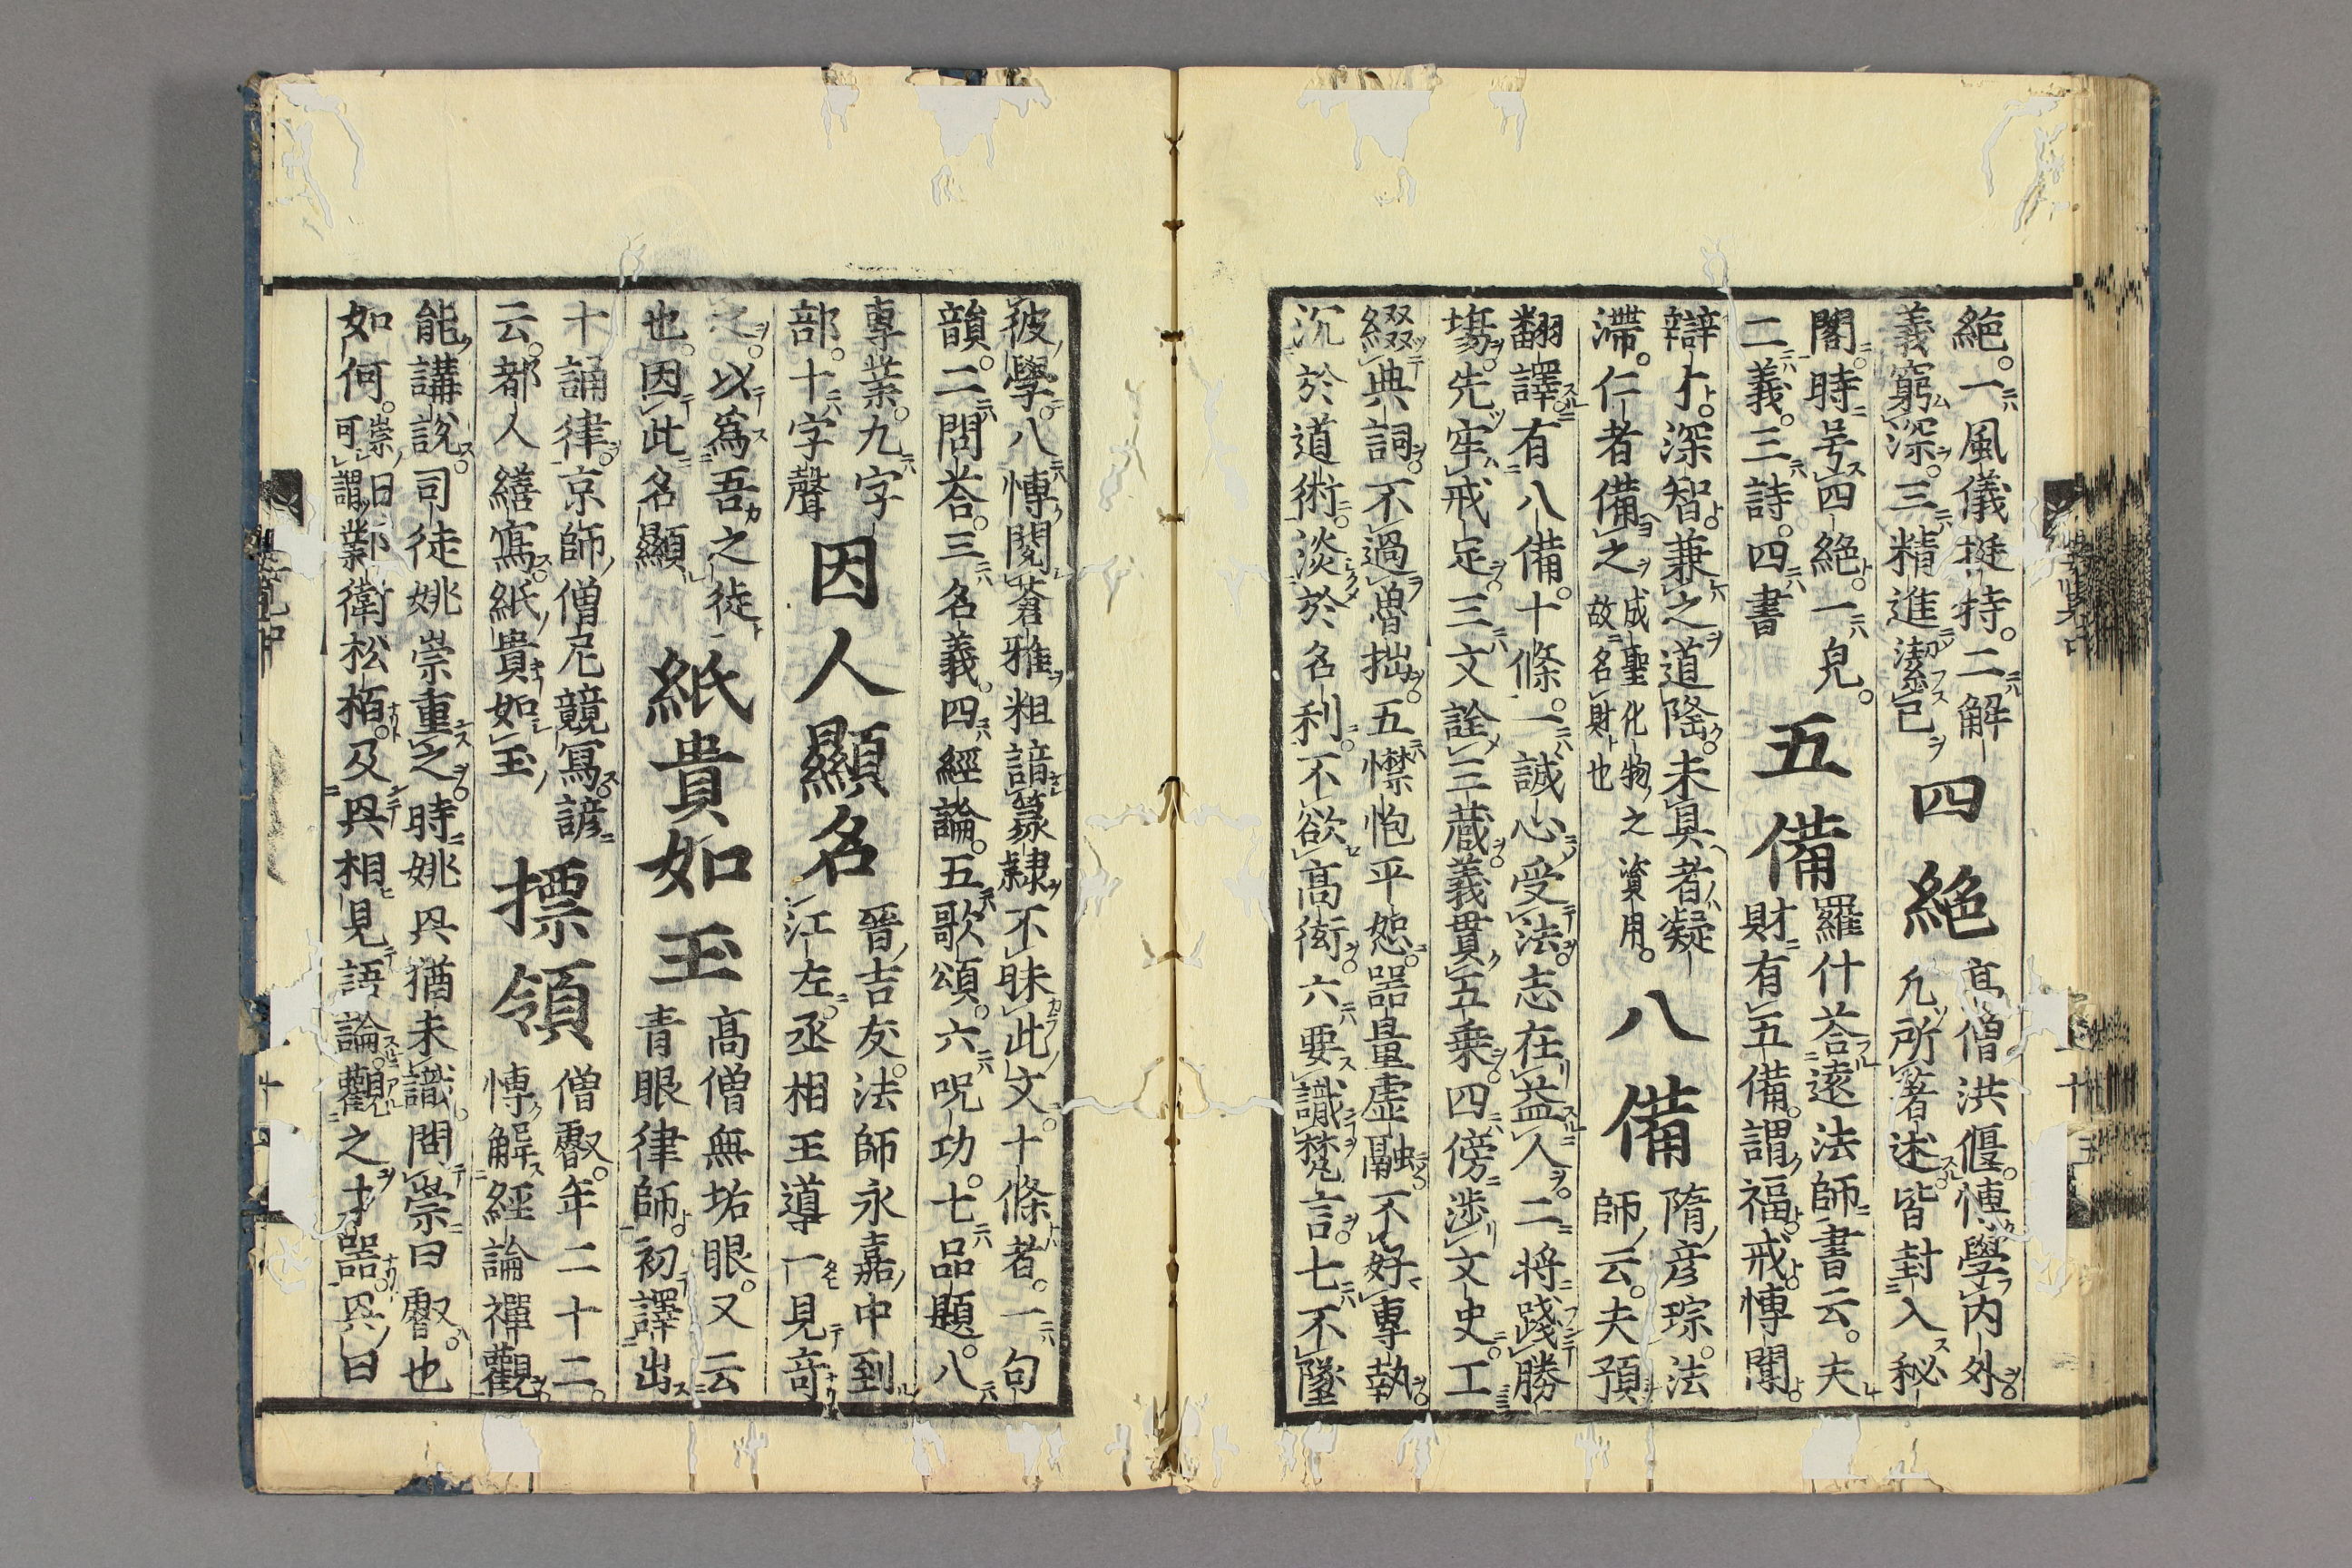 絶。一風儀挺特。二解
義窮深。三精進潔己
四絶
高僧洪偃。博學内外
凡所著述皆封入秘
閣。時号四絶。一皃。
二義。三詩。四書
五備
羅什荅遠法師書云。夫
財有五備。謂福戒博聞
辯才。深智。兼之道隆。未具者凝
滯。仁者備之
成聖化物之資用。
故名財也
八備
隋彦琮。法
師云。夫預
翻譯有八備。十條。一誠心受法。志在益人。二将踐勝
塲。先牢戒足。三文詮三蔵。義貫五乗。四傍渉文史。工
綴典詞。不過魯拙。五懐抱平恕。器量虚融。不好專執。
沉於道術。淡於名利。不欲高衒。六要識梵言。七不墜
彼學。八博閲蒼雅粗諳篆隷不昧此文。十條者。一句
韻。二問荅。三名義。四經論。五歌頌。六呪功。七品題。八
專業。九字
部。十字聲
因人顯名
晉吉友。法師永嘉中到
江左。丞相王導一見竒
之。以爲吾之徒
也。因此名顯
紙貴如玉
高僧無垢眼。又云
青眼律師。初譯出
十誦律。京師僧尼競寫。諺
云。都人繕寫。紙貴如玉
摽領
僧叡。年二十二。
博解經論禪觀。
能講説。司徒姚崇重之。時姚㒷猶未識。問崇曰叡。也
如何。
崇曰
可謂
鄴衛松栢。及㒷相見語論。觀之才器。㒷曰